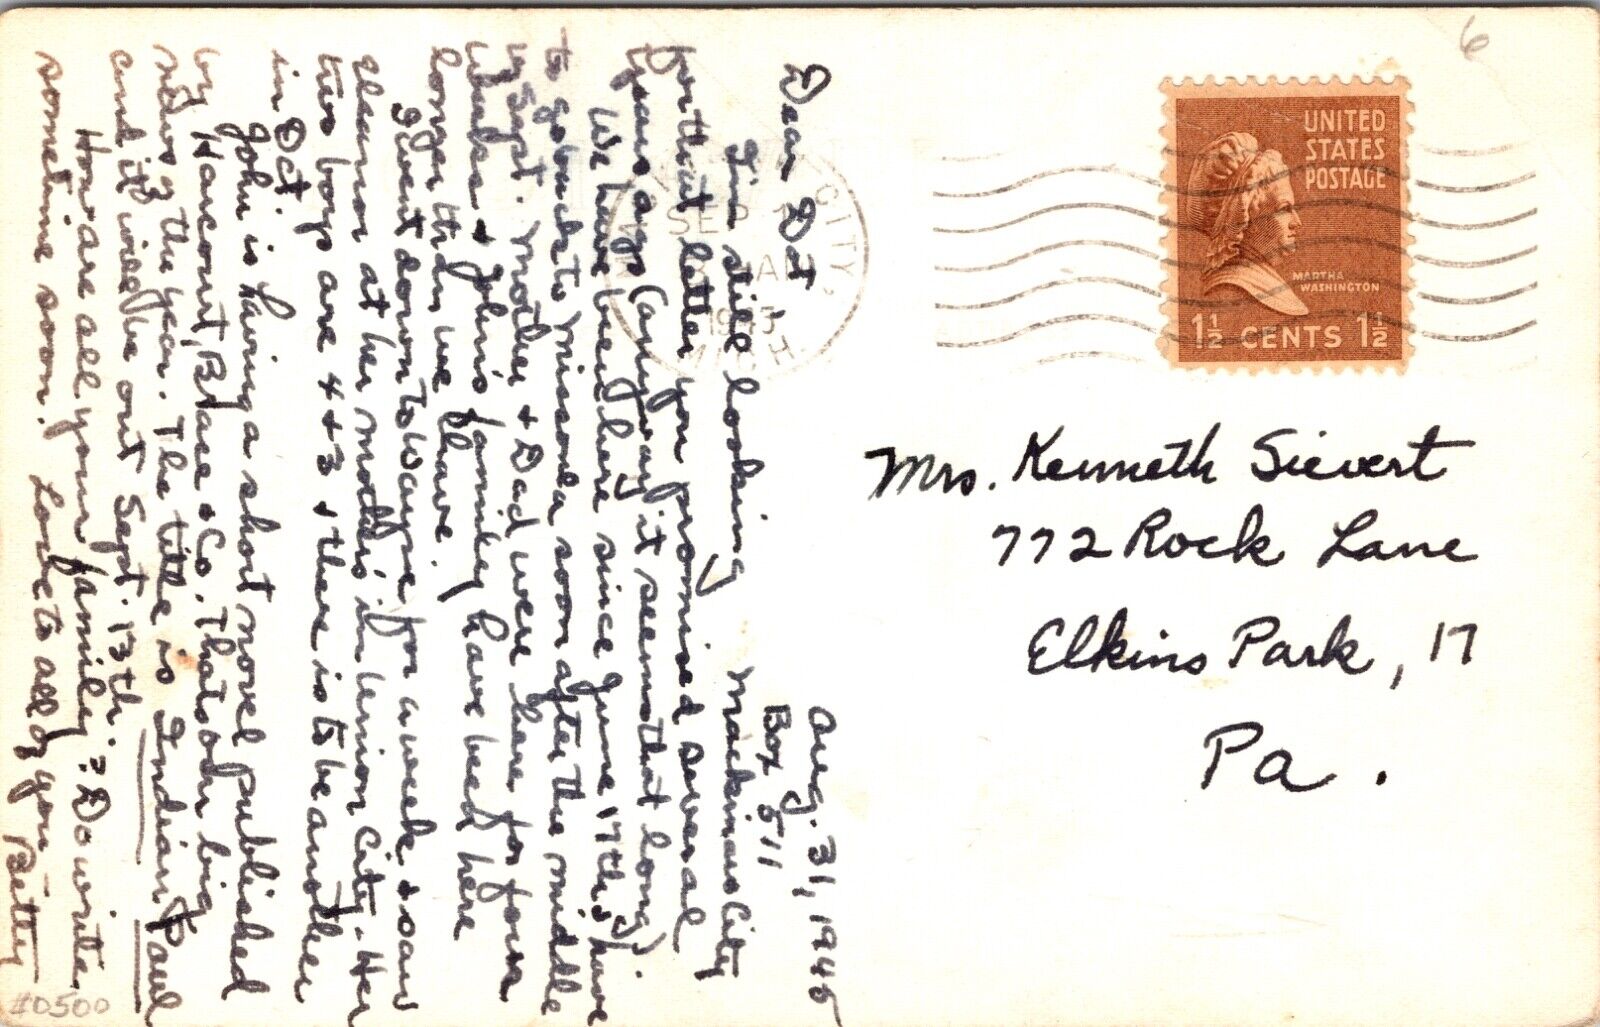 Aug. 31, 1945
Box 511
Mackinaw City
Dear Dot,
I'm still looking
for that letter you promised several
years ago (anyway it seems that long).
We have been here since June 17th & have
to go back to Missoula soon after the middle
of Sept. Mother & Dad were here for four
weeks & John's family have been here
longer than we have.
I went down to Wayne for a week & saw
Eleanor at her mother's in Union City. Her
two boys are 4 & 3 & there is to be another
in Oct.
John is having a short novel published
by Harcourt, Brace & Co. That's our big
news of the year. The title is Indian Paul
and it will be out Sept. 13th.
How are all your family? Do write
sometime soon. Love to all of you
Betty
#0500
6
CITY,
SEP
1945
MICH.
UNITED
STATES
POSTAGE
MARTHA
WASHINGTON
1½ CENTS 1½
Mrs. Kenneth Sievert
772 Rock Lane
Elkins Park, 17
Pa.